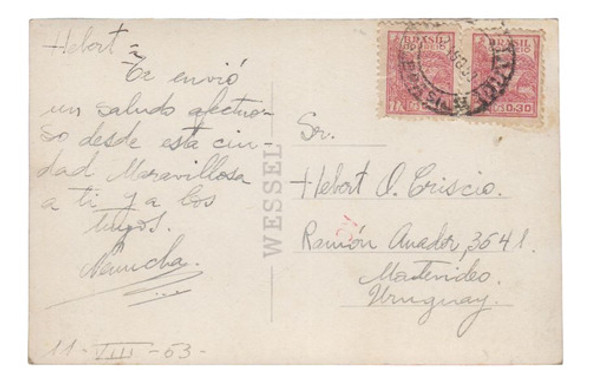 Hebert =
Te envió
un saludo afectuo-
so desde esta ciu-
dad Maravillosa
a ti y a los
tuyos.
11 - VIII - 53 -
WESSEL
BRASIL CORREIO
BRASIL CORREIO
0,30
Sr.
Hebert O. Criscio.
Ramón Anador, 3641.
Montevideo.
Uruguay.